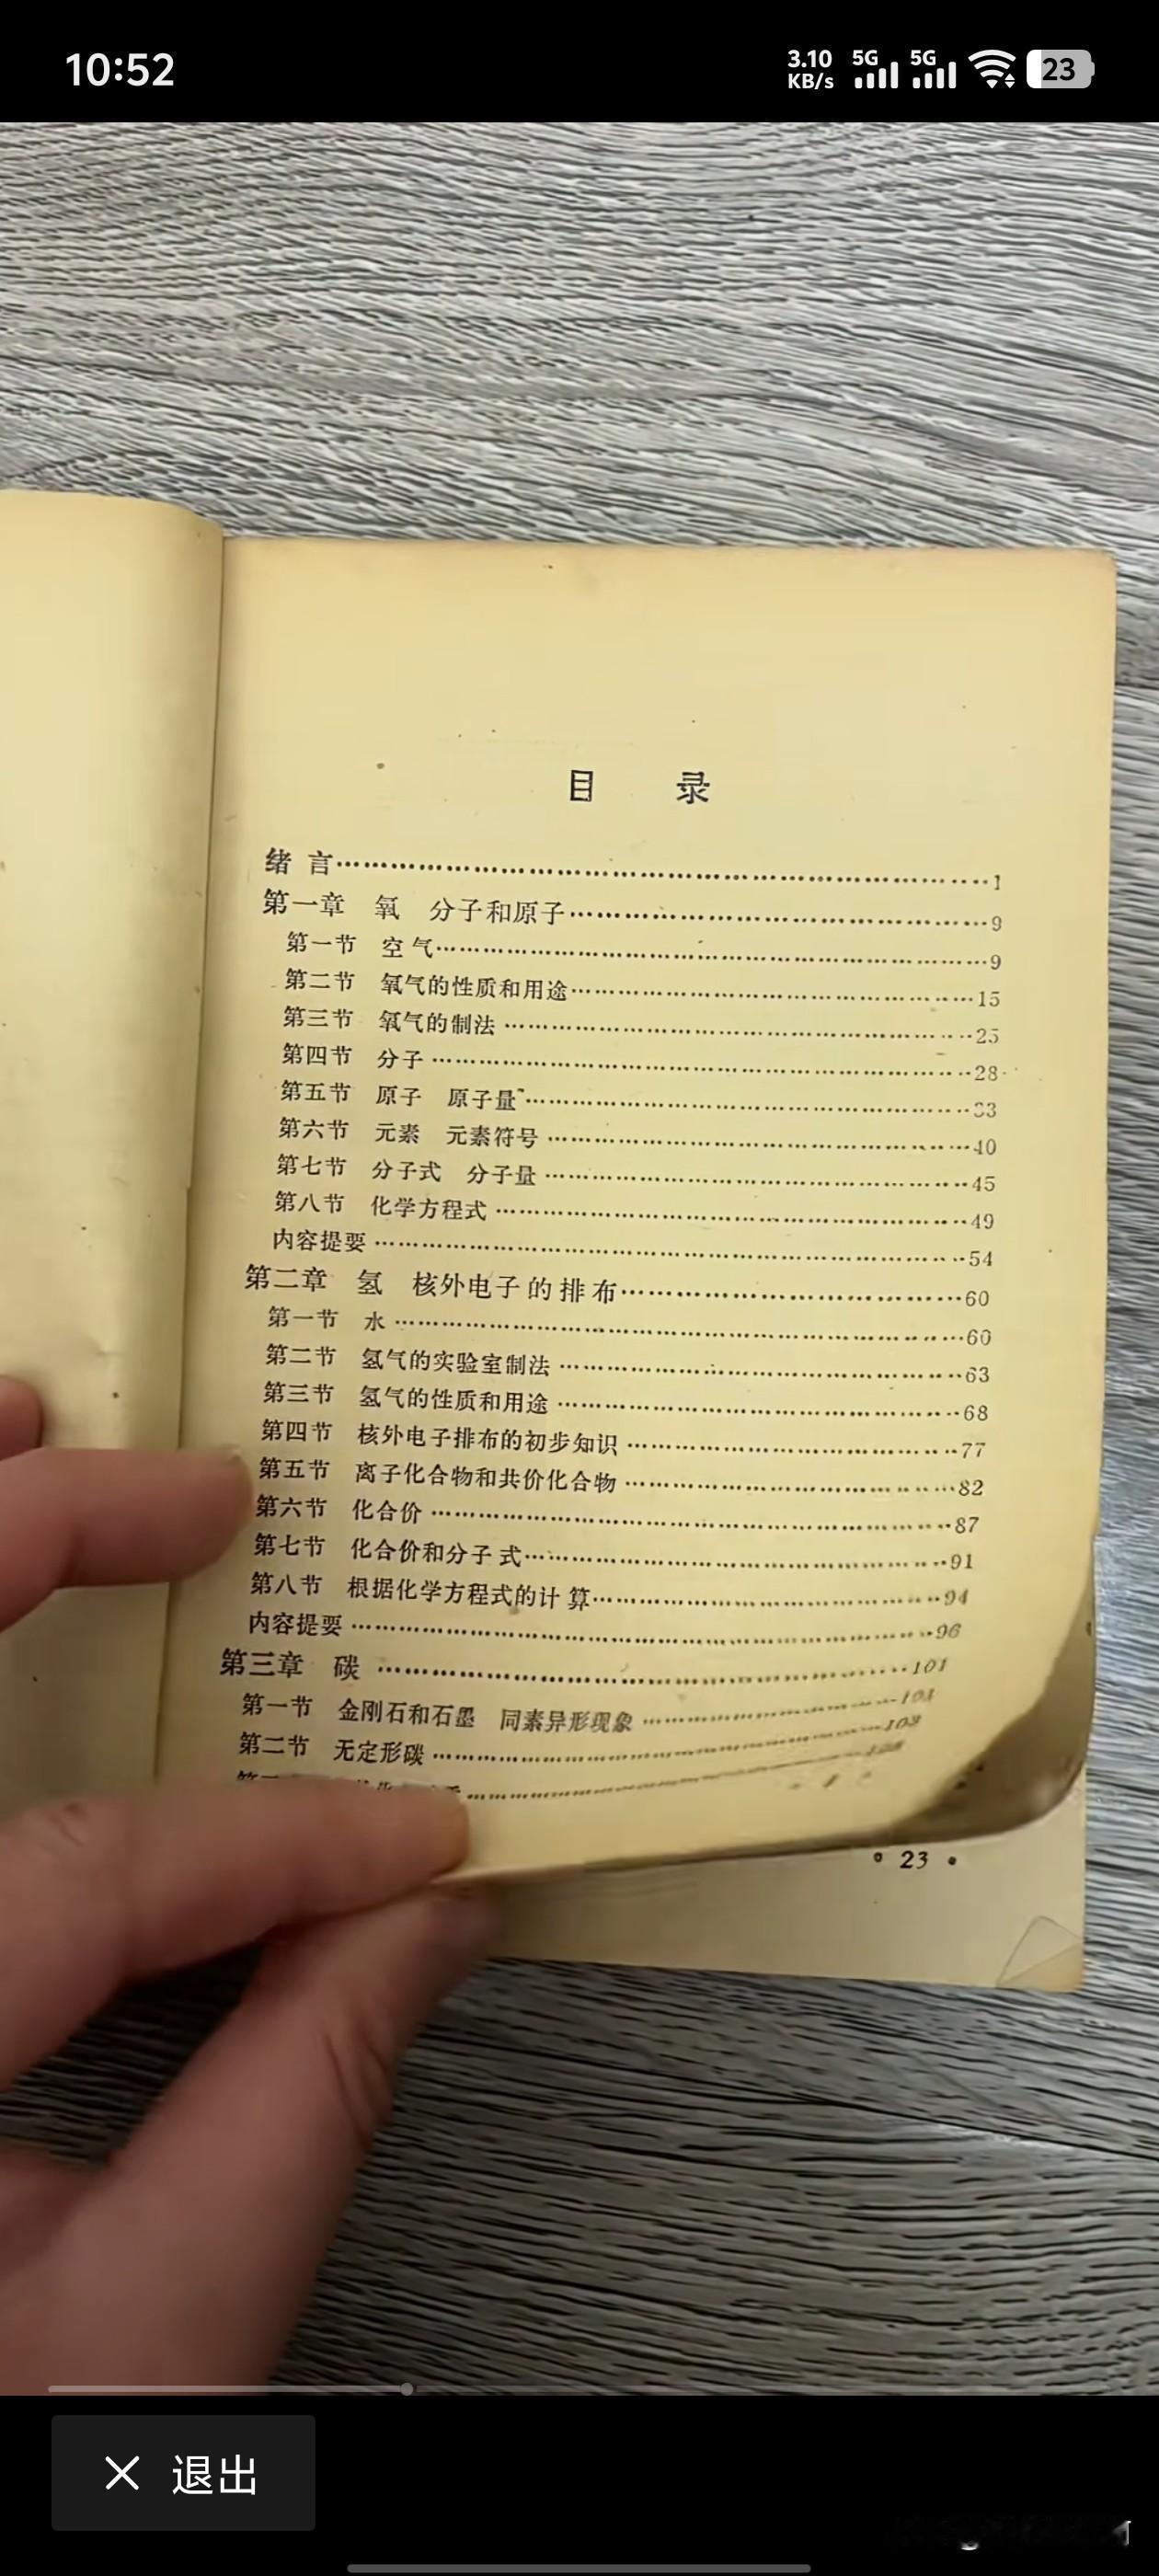 10:52
3.10 KB/s 5G 5G 23
目 录
绪 言……1
第一章 氧 分子和原子……9
第一节 空气……9
第二节 氧气的性质和用途……15
第三节 氧气的制法……25
第四节 分子……28
第五节 原子 原子量……33
第六节 元素 元素符号……40
第七节 分子式 分子量……45
第八节 化学方程式……49
内容提要……54
第二章 氢 核外电子的排布……60
第一节 水……60
第二节 氢气的实验室制法……63
第三节 氢气的性质和用途……68
第四节 核外电子排布的初步知识……77
第五节 离子化合物和共价化合物……82
第六节 化合价……87
第七节 化合价和分子式……91
第八节 根据化学方程式的计算……94
内容提要……96
第三章 碳……101
第一节 金刚石和石墨 同素异形现象……101
第二节 无定形碳……103
• 23 •
× 退出